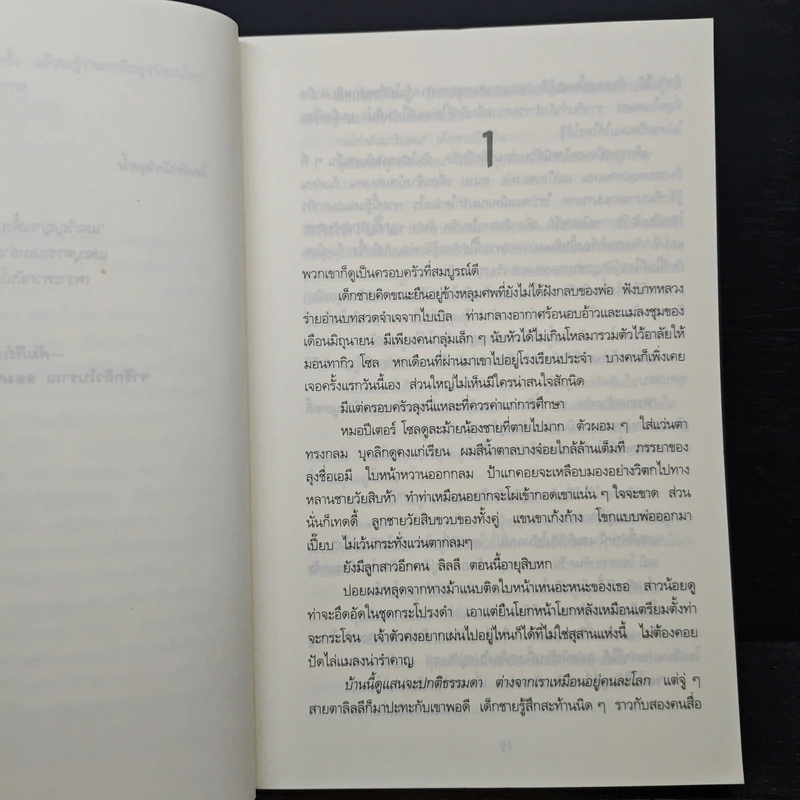 1
พวกเขาก็ดูเป็นครอบครัวที่สมบูรณ์ดี
เด็กชายคิดขณะยืนอยู่ข้างหลุมศพที่ยังไม่ได้ฝังกลบของพ่อ ฟังบาทหลวง
ร่ายอ่านบทสวดจำเจจากไบเบิล ท่ามกลางอากาศร้อนอบอ้าวและแมลงชุมของ
เดือนมิถุนายน มีเพียงคนกลุ่มเล็ก ๆ นับหัวได้ไม่เกินโหลมารวมตัวไว้อาลัยให้
มอนทากิว โซล หกเดือนที่ผ่านมาเขาไปอยู่โรงเรียนประจำ บางคนก็เพิ่งเคย
เจอครั้งแรกวันนี้เอง ส่วนใหญ่ไม่เห็นมีใครน่าสนใจสักนิด
มีแต่ครอบครัวลุงนี่แหละที่ควรค่าแก่การศึกษา
หมอปีเตอร์ โซลดูละม้ายน้องชายที่ตายไปมาก ตัวผอม ๆ ใส่แว่นตา
ทรงกลม บุคลิกดูคงแก่เรียน ผมสีน้ำตาลบางจ๋อยใกล้ล้านเต็มที ภรรยาของ
ลุงชื่อเอมี ใบหน้าหวานออกกลม ป้าแกคอยจะเหลือบมองอย่างวิตกไปทาง
หลานชายวัยสิบห้า ทำท่าเหมือนอยากจะโผเข้ากอดเขาแน่น ๆ ใจจะขาด ส่วน
นั่นก็เทดดี้ ลูกชายวัยสิบขวบของทั้งคู่ แขนขาเก้งก้าง โขกแบบพ่อออกมา
เปี๊ยบ ไม่เว้นกระทั่งแว่นตากลมๆ
ยังมีลูกสาวอีกคน ลิลลี ตอนนี้อายุสิบหก
ปอยผมหลุดจากหางม้าแนบติดใบหน้าเหนอะหนะของเธอ สาวน้อยดู
ท่าจะอึดอัดในชุดกระโปรงดำ เอาแต่ยืนโยกหน้าโยกหลังเหมือนเตรียมตั้งท่า
จะกระโจน เจ้าตัวคงอยากเผ่นไปอยู่ไหนก็ได้ที่ไม่ใช่สุสานแห่งนี้ ไม่ต้องคอย
ปัดไล่แมลงน่ารำคาญ
บ้านนี้ดูแสนจะปกติธรรมดา ต่างจากเราเหมือนอยู่คนละโลก แต่จู่ ๆ
สายตาลิลลีก็มาปะทะกับเขาพอดี เด็กชายรู้สึกสะท้านนิด ๆ ราวกับสองคนสื่อ